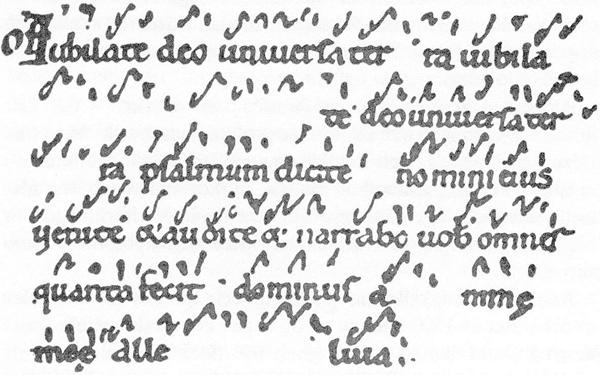 Iubilate deo universa ter ra iubila
te deo universa ter
ra psalmum dicite nomini eius
venite & audite & narrabo vob omnes
quanta fecit dominus anime
meę alle luia.